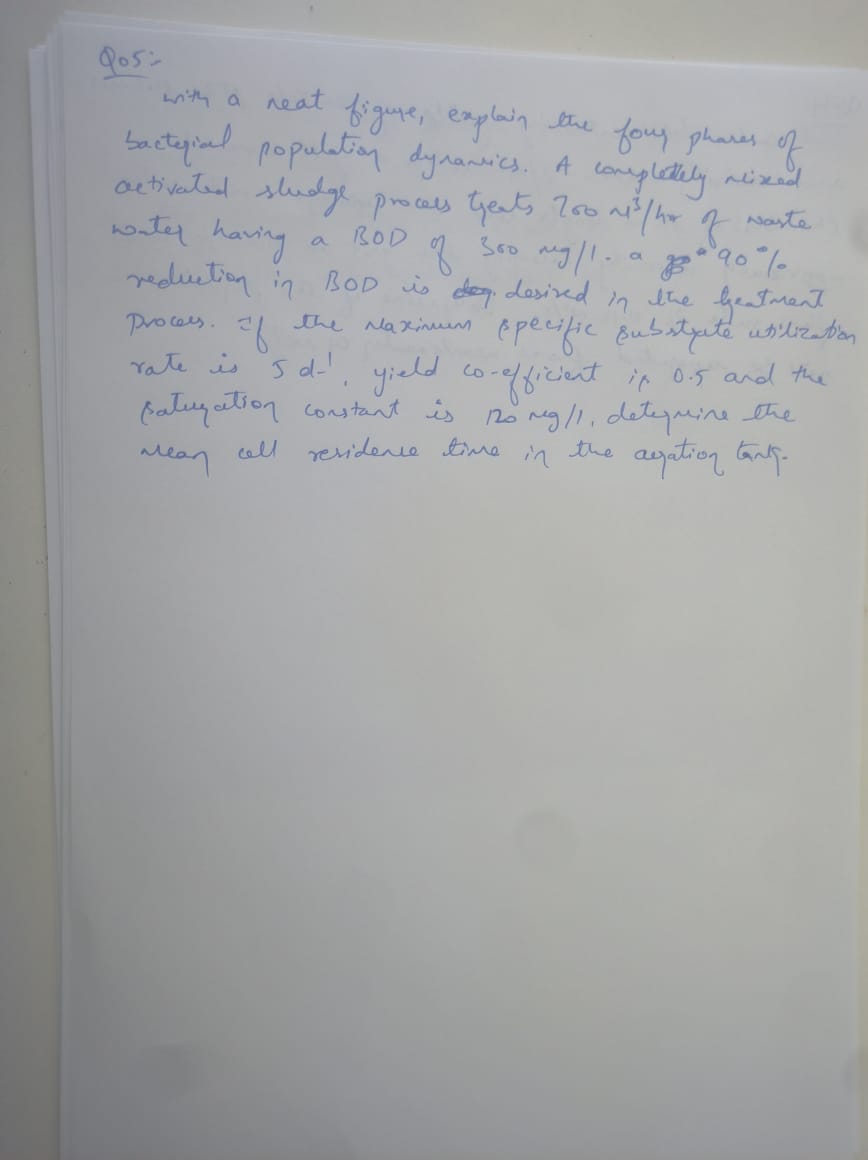 Q05:-
with a neat figure, explain the four phases of
bacterial population dynamics. A completely mixed
activated sludge process treats 200 M³/hr of waste
water having a BOD of 300 mg/l. a 90%
reduction in BOD is desired in the treatment
process. If the Maximum specific substrate utilization
rate is 5 d-1, yield co-efficient is 0.5 and the
saturation constant is 120 mg/l, determine the
Mean cell residence time in the aeration tank.